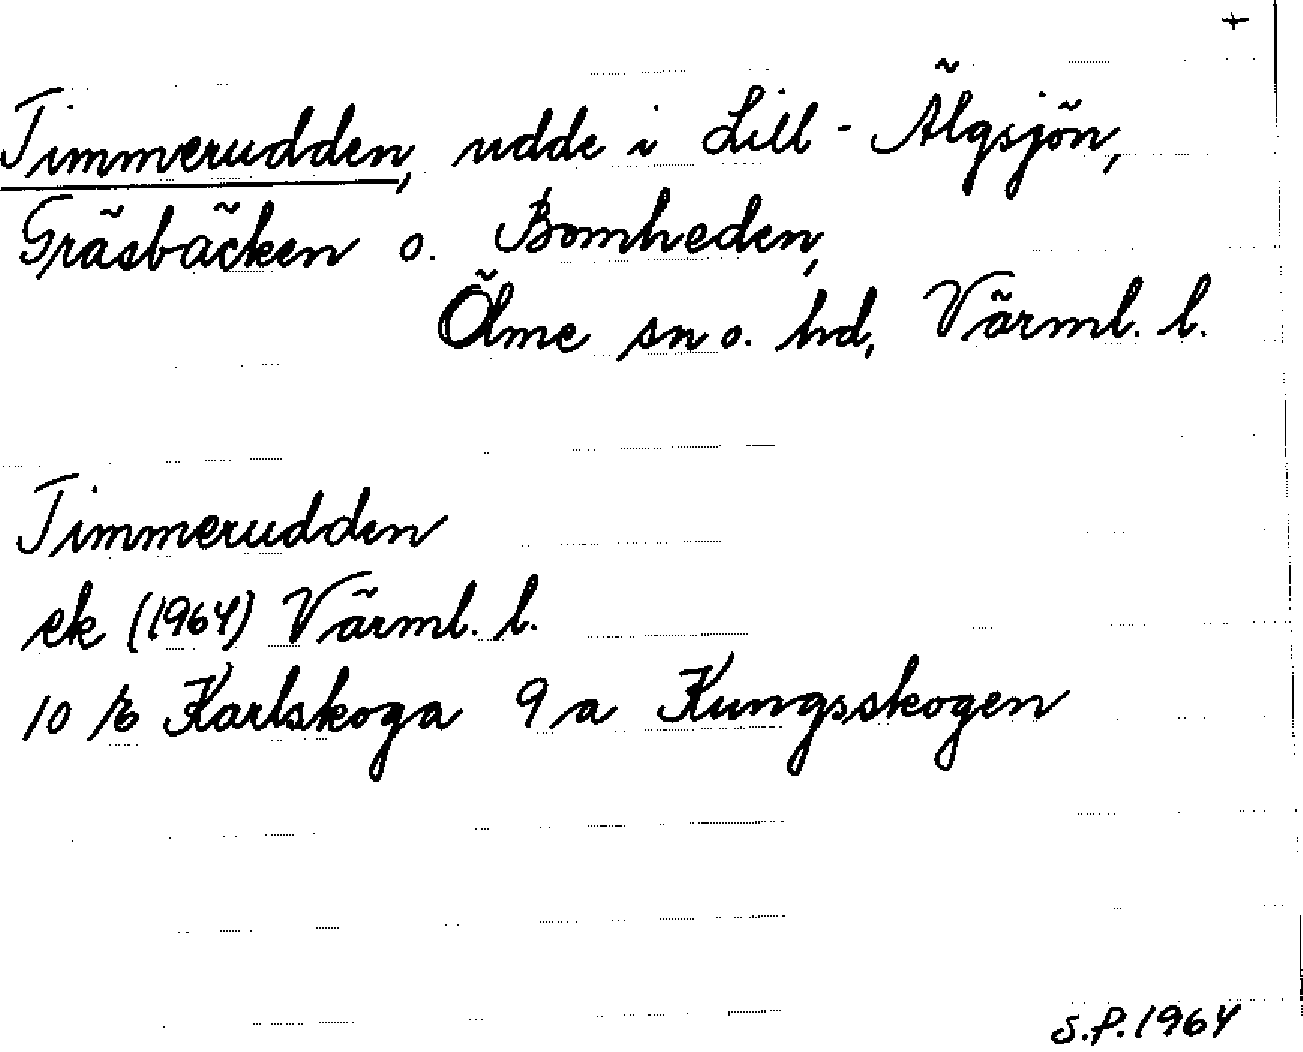 +
Timmerudden, udde i Lill-Älgsjön,
Gräsbäcken o. Bomheden,
Ölme sn o. hd, Värml. l.
Timmerudden
ek (1964) Värml. l.
10 E Karlskoga 9 a Kungsskogen
S.P. 1964